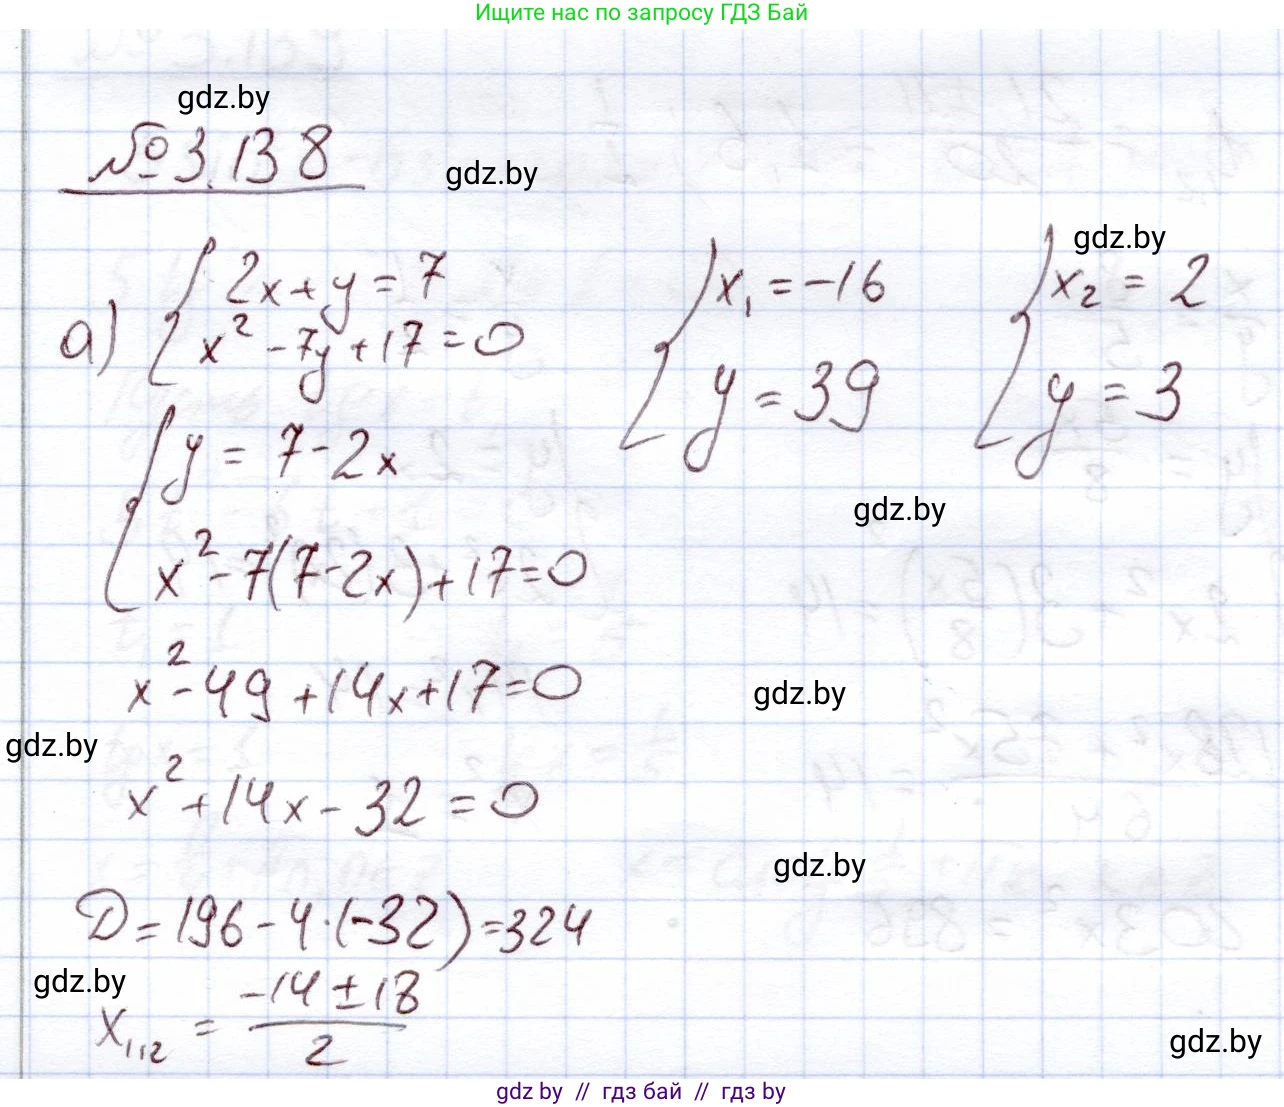 Ищите нас по запросу ГДЗ Бай
gdz.by
№ 3.138
gdz.by
gdz.by
а) { 2x + y = 7
x² - 7y + 17 = 0
{ x₁ = -16
y = 39
{ x₂ = 2
y = 3
{ y = 7 - 2x
x² - 7(7 - 2x) + 17 = 0
gdz.by
x² - 49 + 14x + 17 = 0
gdz.by
gdz.by
x² + 14x - 32 = 0
gdz.by
D = 196 - 4·(-32) = 324
gdz.by
x₁,₂ = (-14 ± 18) / 2
gdz.by
gdz.by // гдз бай // гдз by